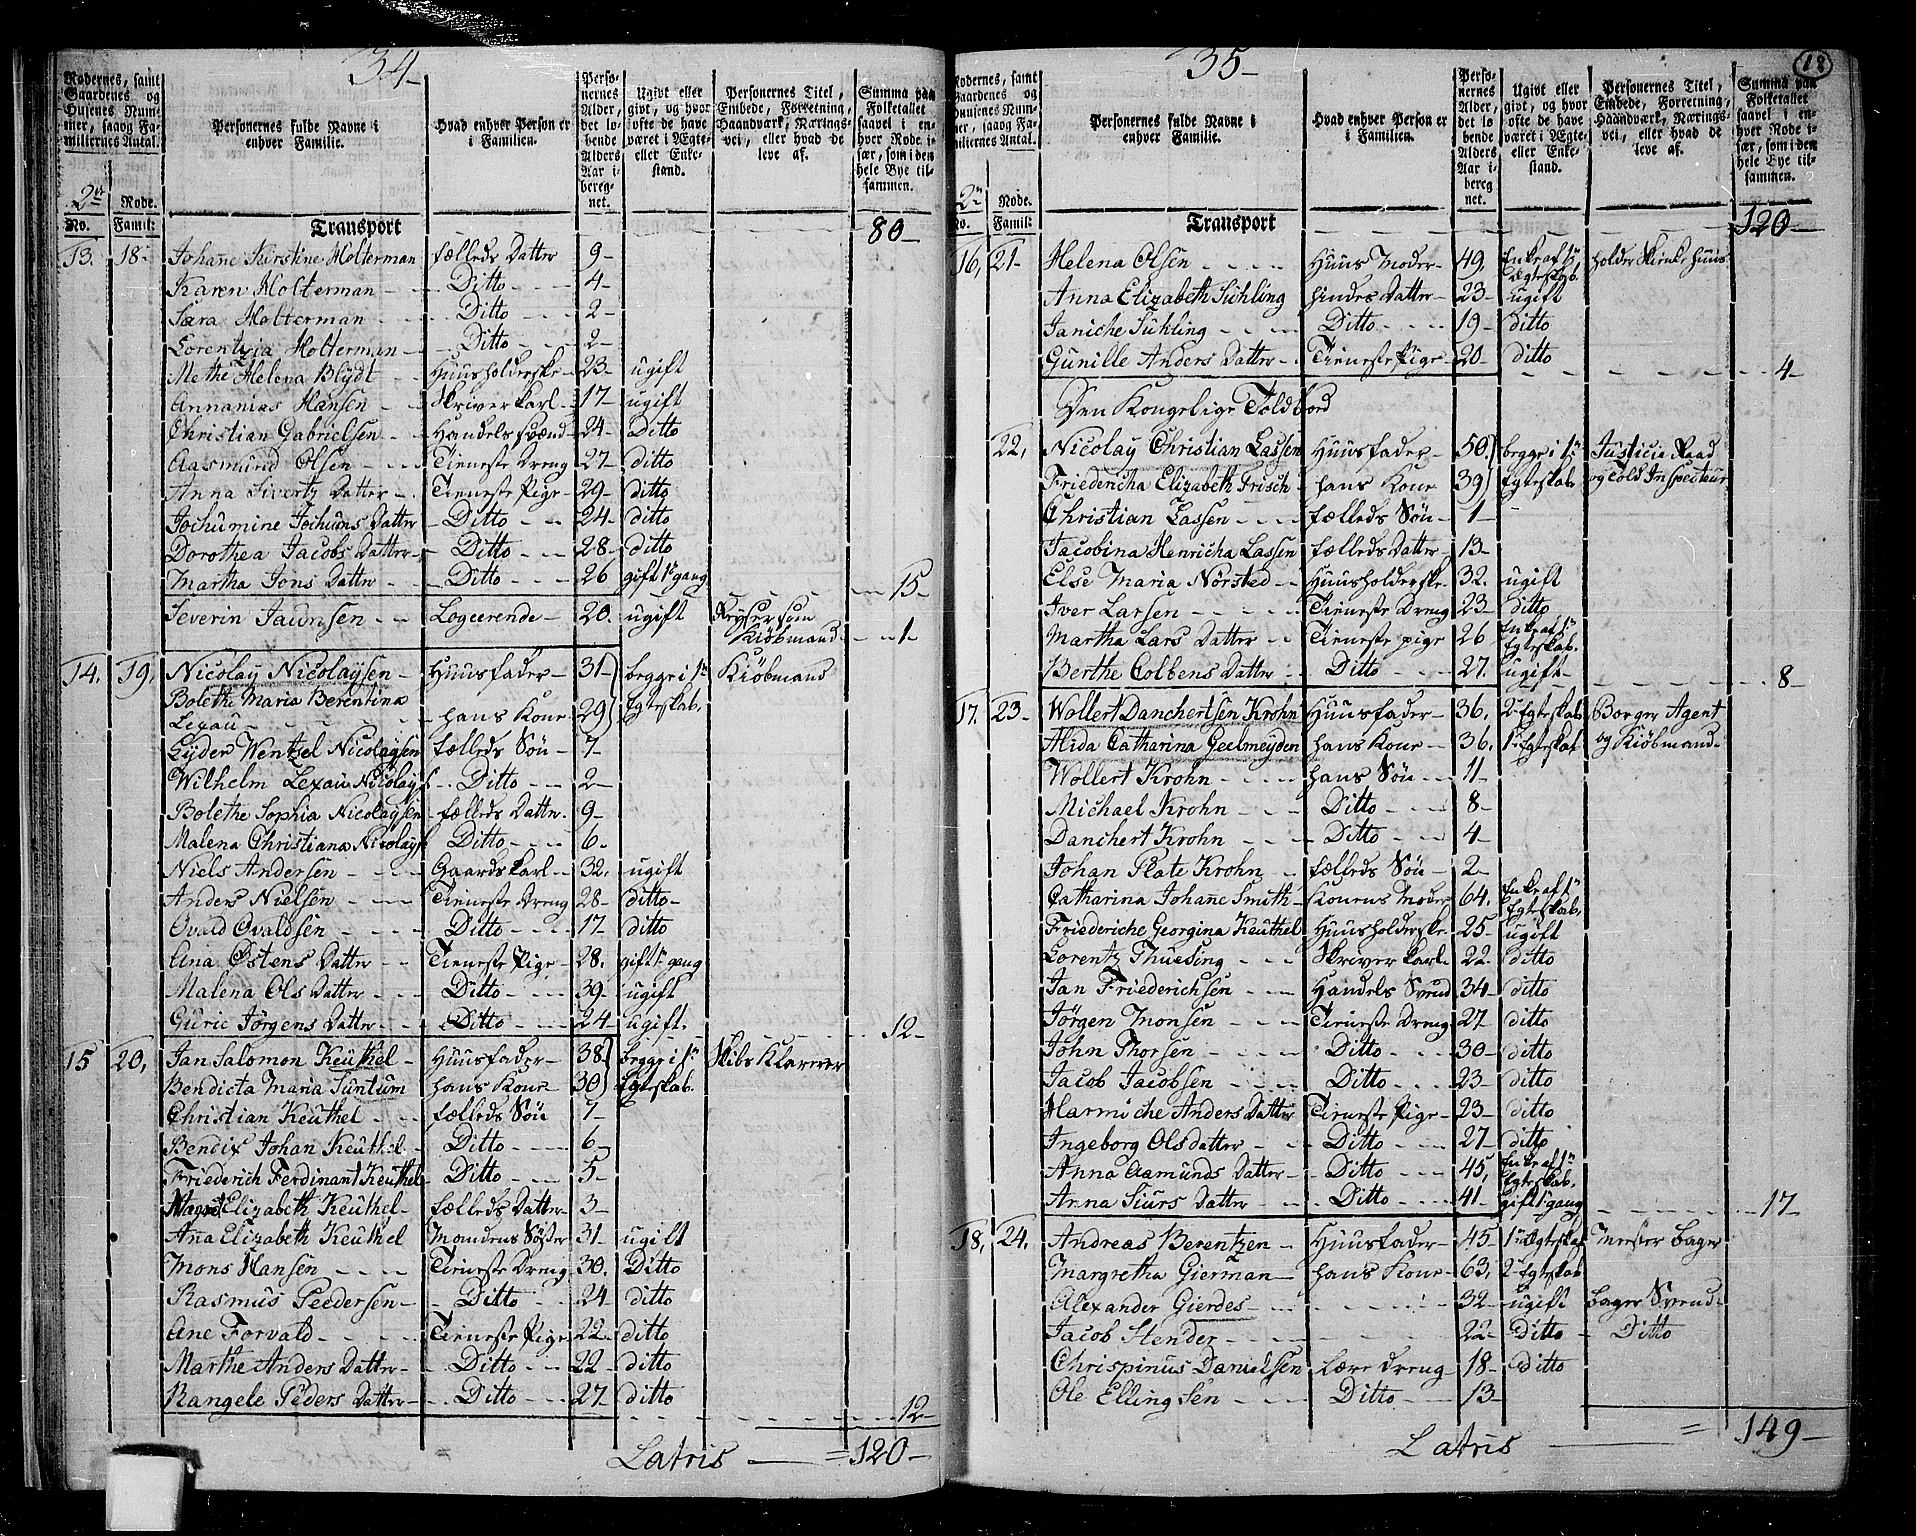 34-
Rodernes, samt Gaardenes og Husenes Nummer, saavog Familiernes Antal.
Personernes fulde Navne i enhver Familie.
Hvad enhver Person er i Familien.
Personernes Alder, det løbende Alders Aar iberegnet.
Ugivt eller givt, og hvor ofte de have været i Ægte- eller Enkestand.
Personernes Titel, Embede, Forretning, Haandværk, Næringsvei, eller hvad de leve af.
Summa paa Folketallet saavel i enhver Rode især, som i den hele Bye tilsammen.
2de Rode.
No. Famil: Transport 80-
13. 18- Johañe Kirstine Holterman fælleds Datter 9-
Karen Holterman - Ditto - 4-
Sara Holterman - Ditto - 2-
Lorentzia Holterman - Ditto - 2-
Methe Helena Blÿdt - Huusholderske 23- ugift
Annanias Hansen - Skriver karl 17- ugift
Christian Gabrielsen - Handels svend 24- Ditto
Aasmund Olsen - Tieneste Dreng 27- ditto
Anna Sivertz Datter - Tieneste Pige 29- ditto
Jochumine Jochums Datter - Ditto - 24- ditto
Dorothea Jacobs Datter - Ditto - 28- ditto
Martha Jons Datter - Ditto - 26 gift 1e gang 15-
Severin - Logeerende 20. ugift
Kiöbmand - 1-
14. 19. Nicolaÿ Nicolaÿsen - Huusfader 31 begge i 1e Kiöbmand
Bolethe Maria Berentina
Lexau - hans Kone 29 Egteskab.
Lÿder Wentzel Nicolaÿsen fælleds Sön 7-
Wilhelm Lexau Nicolaÿs - Ditto - 2-
Bolethe Sophia Nicolaÿsen fælleds Datter 9-
Malena Christiana Nicolaÿs Ditto - 6-
Niels Andersen - Gaards karl 32. ugift
Anders Nielsen - Tieneste Dreng 28- ditto-
Ovald Ovaldsen - Ditto - 17- ditto
Ana Östens Datter - Tieneste Pige 28. gift 1e gang
Malena Ols Datter - Ditto - 39- ugift
Gurie Jörgens Datter - Ditto - 24- ugift. 12-
15 20, Jan Salomon Keuthel - Huusfader 38 begge i 1e Skibs Klarerer
Bendicta Maria Suntum hans Kone 30 Egteskab
Christian Keuthel - fælleds Sön 7-
Bendix Johan Keuthel - Ditto - 6-
Friederich Ferdinant Keuthel Ditto - 5-
Elizabeth Keuthel - fælleds Datter 3-
Aña Elizabeth Keuthel Mandens Söster 31- ugift
Mons Hansen - Tieneste Dreng 30. Ditto
Rasmus Peedersen - Ditto - 24 ditto
Ane Forvald - Tieneste Pige 22- ditto
Marthe Anders Datter - Ditto - 22- ditto
Rangele Peders Datter - Ditto - 27- ditto
12-
Latris = 120-
35-
18
Rodernes, samt Gaardenes og Husenes Nummer, saavog Familiernes Antal.
Personernes fulde Navne i enhver Familie.
Hvad enhver Person er i Familien.
Personernes Alder, det løbende Alders Aar iberegnet.
Ugivt eller givt, og hvor ofte de have været i Ægte- eller Enkestand.
Personernes Titel, Embede, Forretning, Haandværk, Næringsvei, eller hvad de leve af.
Summa paa Folketallet saavel i enhver Rode især, som i den hele Bye tilsammen.
2de Rode.
No. Famil: Transport 120-
16, 21- Helena Olsen - Huus Moder 49. Enke af 1e Ægteskab. holder Skienke huus
Anna Elizabeth Sühling hindes Datter 23- ugift
Janiche Sühling - Ditto - 19- ditto
Gunille Anders Datter - Tieneste Pige 20- ditto
4-
Den Kongelige Toldbod
22, Nicolaÿ Christian Lassen Huusfader 50. begge i 1e Justice Raad
Friedericha Elizabeth Frisch hans Kone 39 Egteskab og Told Inspecteur
Christian Lassen - fælleds Sön 1-
Jacobina Henricha Lassen fælleds Datter 13-
Else Maria Nörsted - Huusholderske 32. ugift
Iver Larsen - Tieneste Dreng 23- ditto
Martha Lars Datter - Tieneste pige 26 Enke af 1e Egteskab.
Berthe Colbens Datter - Ditto - 27. ugift - 8-
17. 23- Wollert Danchertsen Krohn Huusfader 36. 2 Egteskab Borger Agent
Alida Catharina Geelmeyden hans Kone 36. 1 Egteskab og Kiöbmand.
Wollert Krohn - hans Sön 11-
Michael Krohn - Ditto - 8-
Danchert Krohn - Ditto - 4-
Johan Plate Krohn - fælleds Sön 2-
Catharina Johañe Smith - Konens Moder 64. Enke af 1e Egteskab.
Friederiche Georgina Keuthel Huusholderske 25- ugift
Lorentz Thuesing - Skriver karl 22. ditto
Jan Friederichsen - Handels Svend 34- ditto
Jörgen Monsen - Tieneste Dreng 27- ditto
John Thorsen - Ditto - 30- ditto
Jacob Jacobsen - Ditto - 23- ditto
Harmiche Anders Datter Tieneste Pige 23- ditto
Ingeborg Olsdatter - Ditto - 27- ditto
Anna Aamunds Datter - Ditto - 45, Enke af 1e Egteskab.
Anna Siurs Datter - Ditto - 41- gift 1e gang 17-
18, 24. Andreas Berentzen - Huusfader 45 1 Ægteskab Mester Bager
Margretha Gierman - hans Kone 63. 2 Egteskab
Alexander Gierdes - 32 ugift Bager Svend
Jacob Stender - 22- Ditto - Ditto
Chrispinus Danielsen Lære dreng 18- Ditto
Ole Ellingsen - Ditto - 13-
Latris = 149-